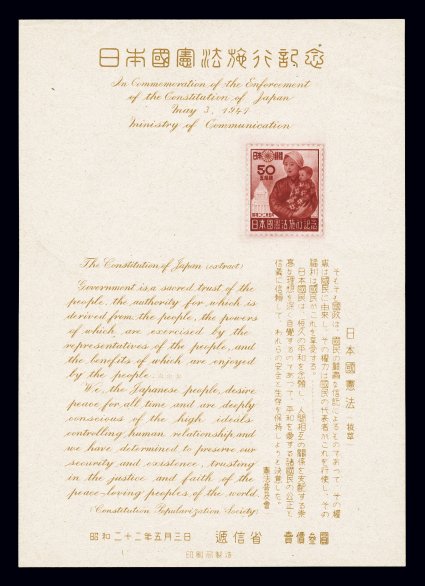 日本國憲法施行記念
In Commemoration of the Enforcement
of the Constitution of Japan
May 3, 1947
Ministry of Communication
50
日本國憲法施行記念
The Constitution of Japan (extract)
Government is a sacred trust of the
people, the authority for which is
derived from the people, the powers
of which are exercised by the
representatives of the people, and
the benefits of which are enjoyed
by the people.
We, the Japanese people, desire
peace for all time and are deeply
conscious of the high ideals
controlling human relationship, and
we have determined to preserve our
security and existence, trusting
in the justice and faith of the
peace-loving peoples of the world.
(Constitution Popularization Society)
日本國憲法
そもそも國政は、國民の嚴肅な信託によるものであつて、その權
威は國民に由來し、その權力は國民の代表者がこれを行使し、その
福利は國民がこれを享受する。
日本國民は、恒久の平和を念願し、人間相互の關係を支配する崇
高な理想を深く自覺するのであつて、平和を愛する諸國民の公正と
信義に信賴して、われらの安全と生存を保持しようと決意した。
憲法普及會
昭和二十二年五月三日 遞信省 賣價參圓
印刷局製造